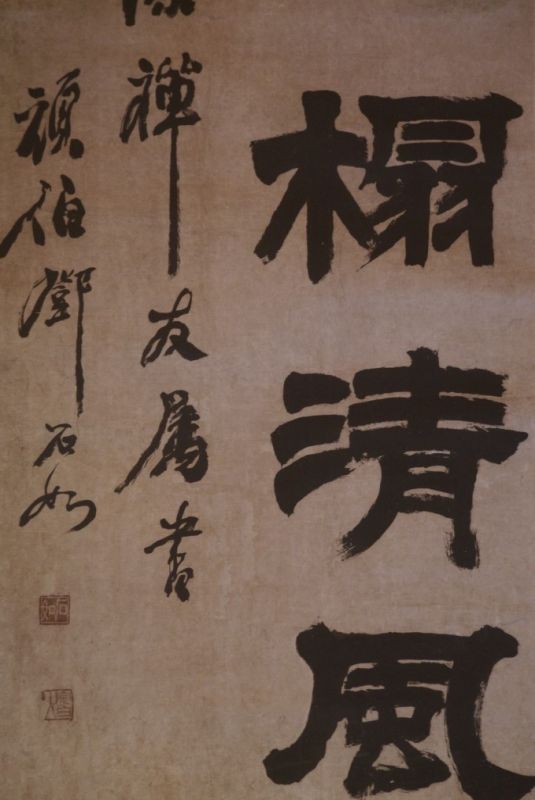 榻清風
禪友屬書
頑伯鄧石如
石如